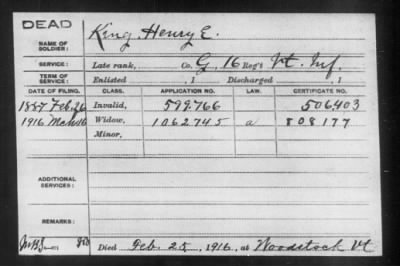 DEAD
NAME OF SOLDIER: King, Henry E.
SERVICE: Late rank, Co. G, 16 Reg't Vt. Inf.
TERM OF SERVICE: Enlisted , 1 Discharged , 1
DATE OF FILING. CLASS. APPLICATION NO. LAW. CERTIFICATE NO.
1887 Feb. 26 Invalid, 599.766 506.403
1916 Mch Widow, 1062.745 a 808177
Minor,
ADDITIONAL SERVICES:
REMARKS:
Died Feb. 25, 1916, at Woodstock Vt